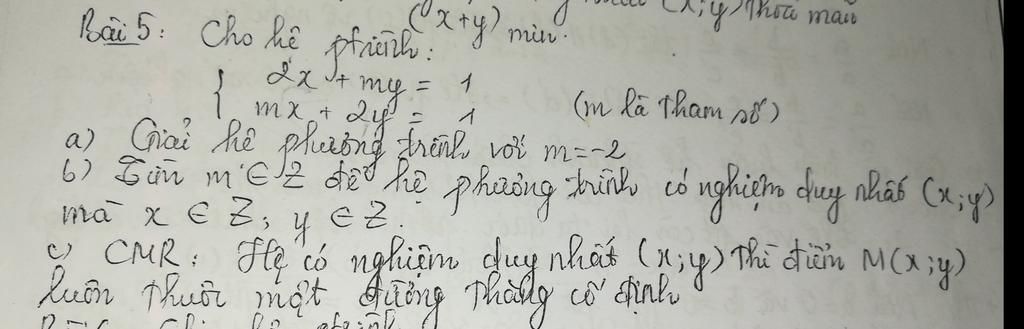 (x;y) thỏa mãn
(x+y) min.
Bài 5: Cho hệ ptrình:
2x + my = 1
mx + 2y = 1 (m là tham số)
a) Giải hệ phương trình với m=-2
b) Tìm m ∈ Z để hệ phương trình có nghiệm duy nhất (x;y)
mà x ∈ Z; y ∈ Z.
c) CMR: Hệ có nghiệm duy nhất (x;y) thì điểm M(x;y)
luôn thuộc một đường thẳng cố định